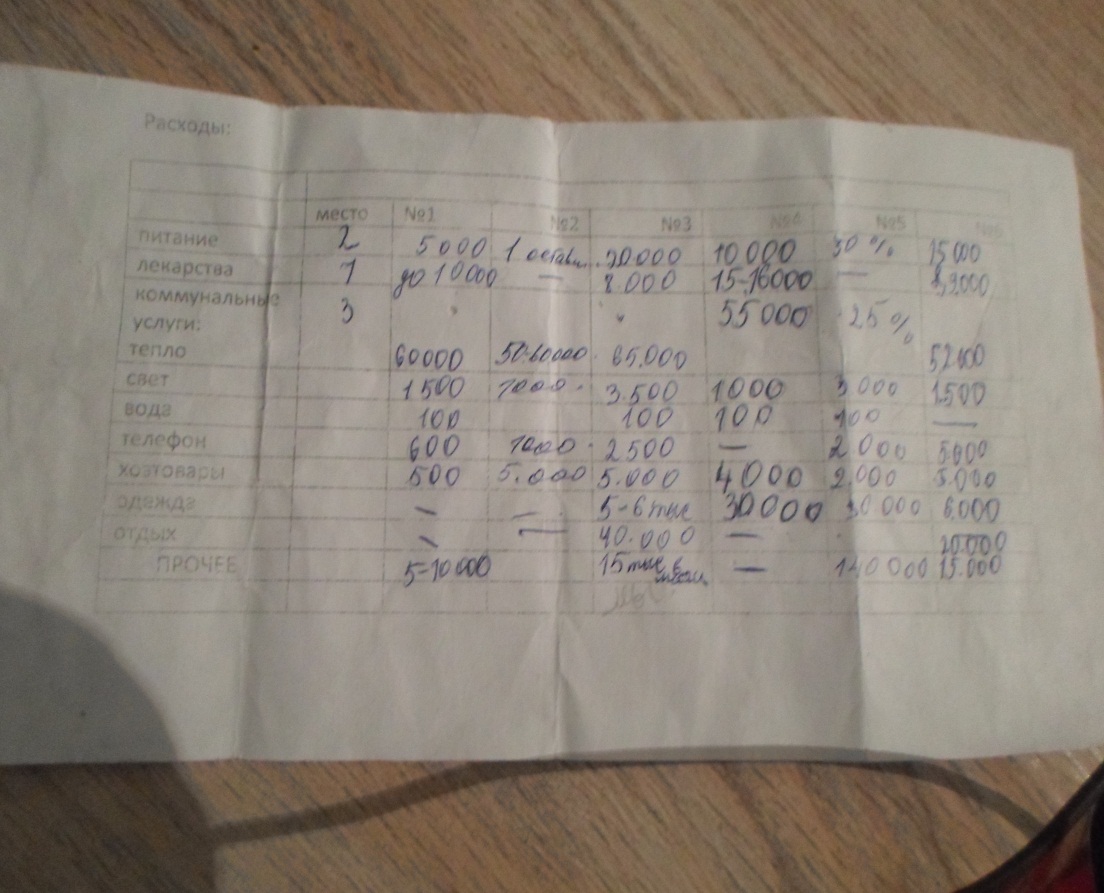 Расходы:
место №1 №2 №3 №4 №5 №6
питание 2 5000 1 10000 30% 15000
лекарства 1 до 10000 — 8.000 15-16000 —
коммунальные
услуги: 3 55000 25%
тепло 60000 50-60000 65.000
свет 1500 1000 3.500 1000 3000 1500
вода 100 100 100 100 —
телефон 600 1000 2500 — 2000 5.000
хозтовары 500 5.000 5.000 4000 2.000 5.000
одежда — — 5-6тыс 30000 30000 6.000
отдых — — 40.000 —
ПРОЧЕЕ 5-10000 15тыс в месяц — 15.000